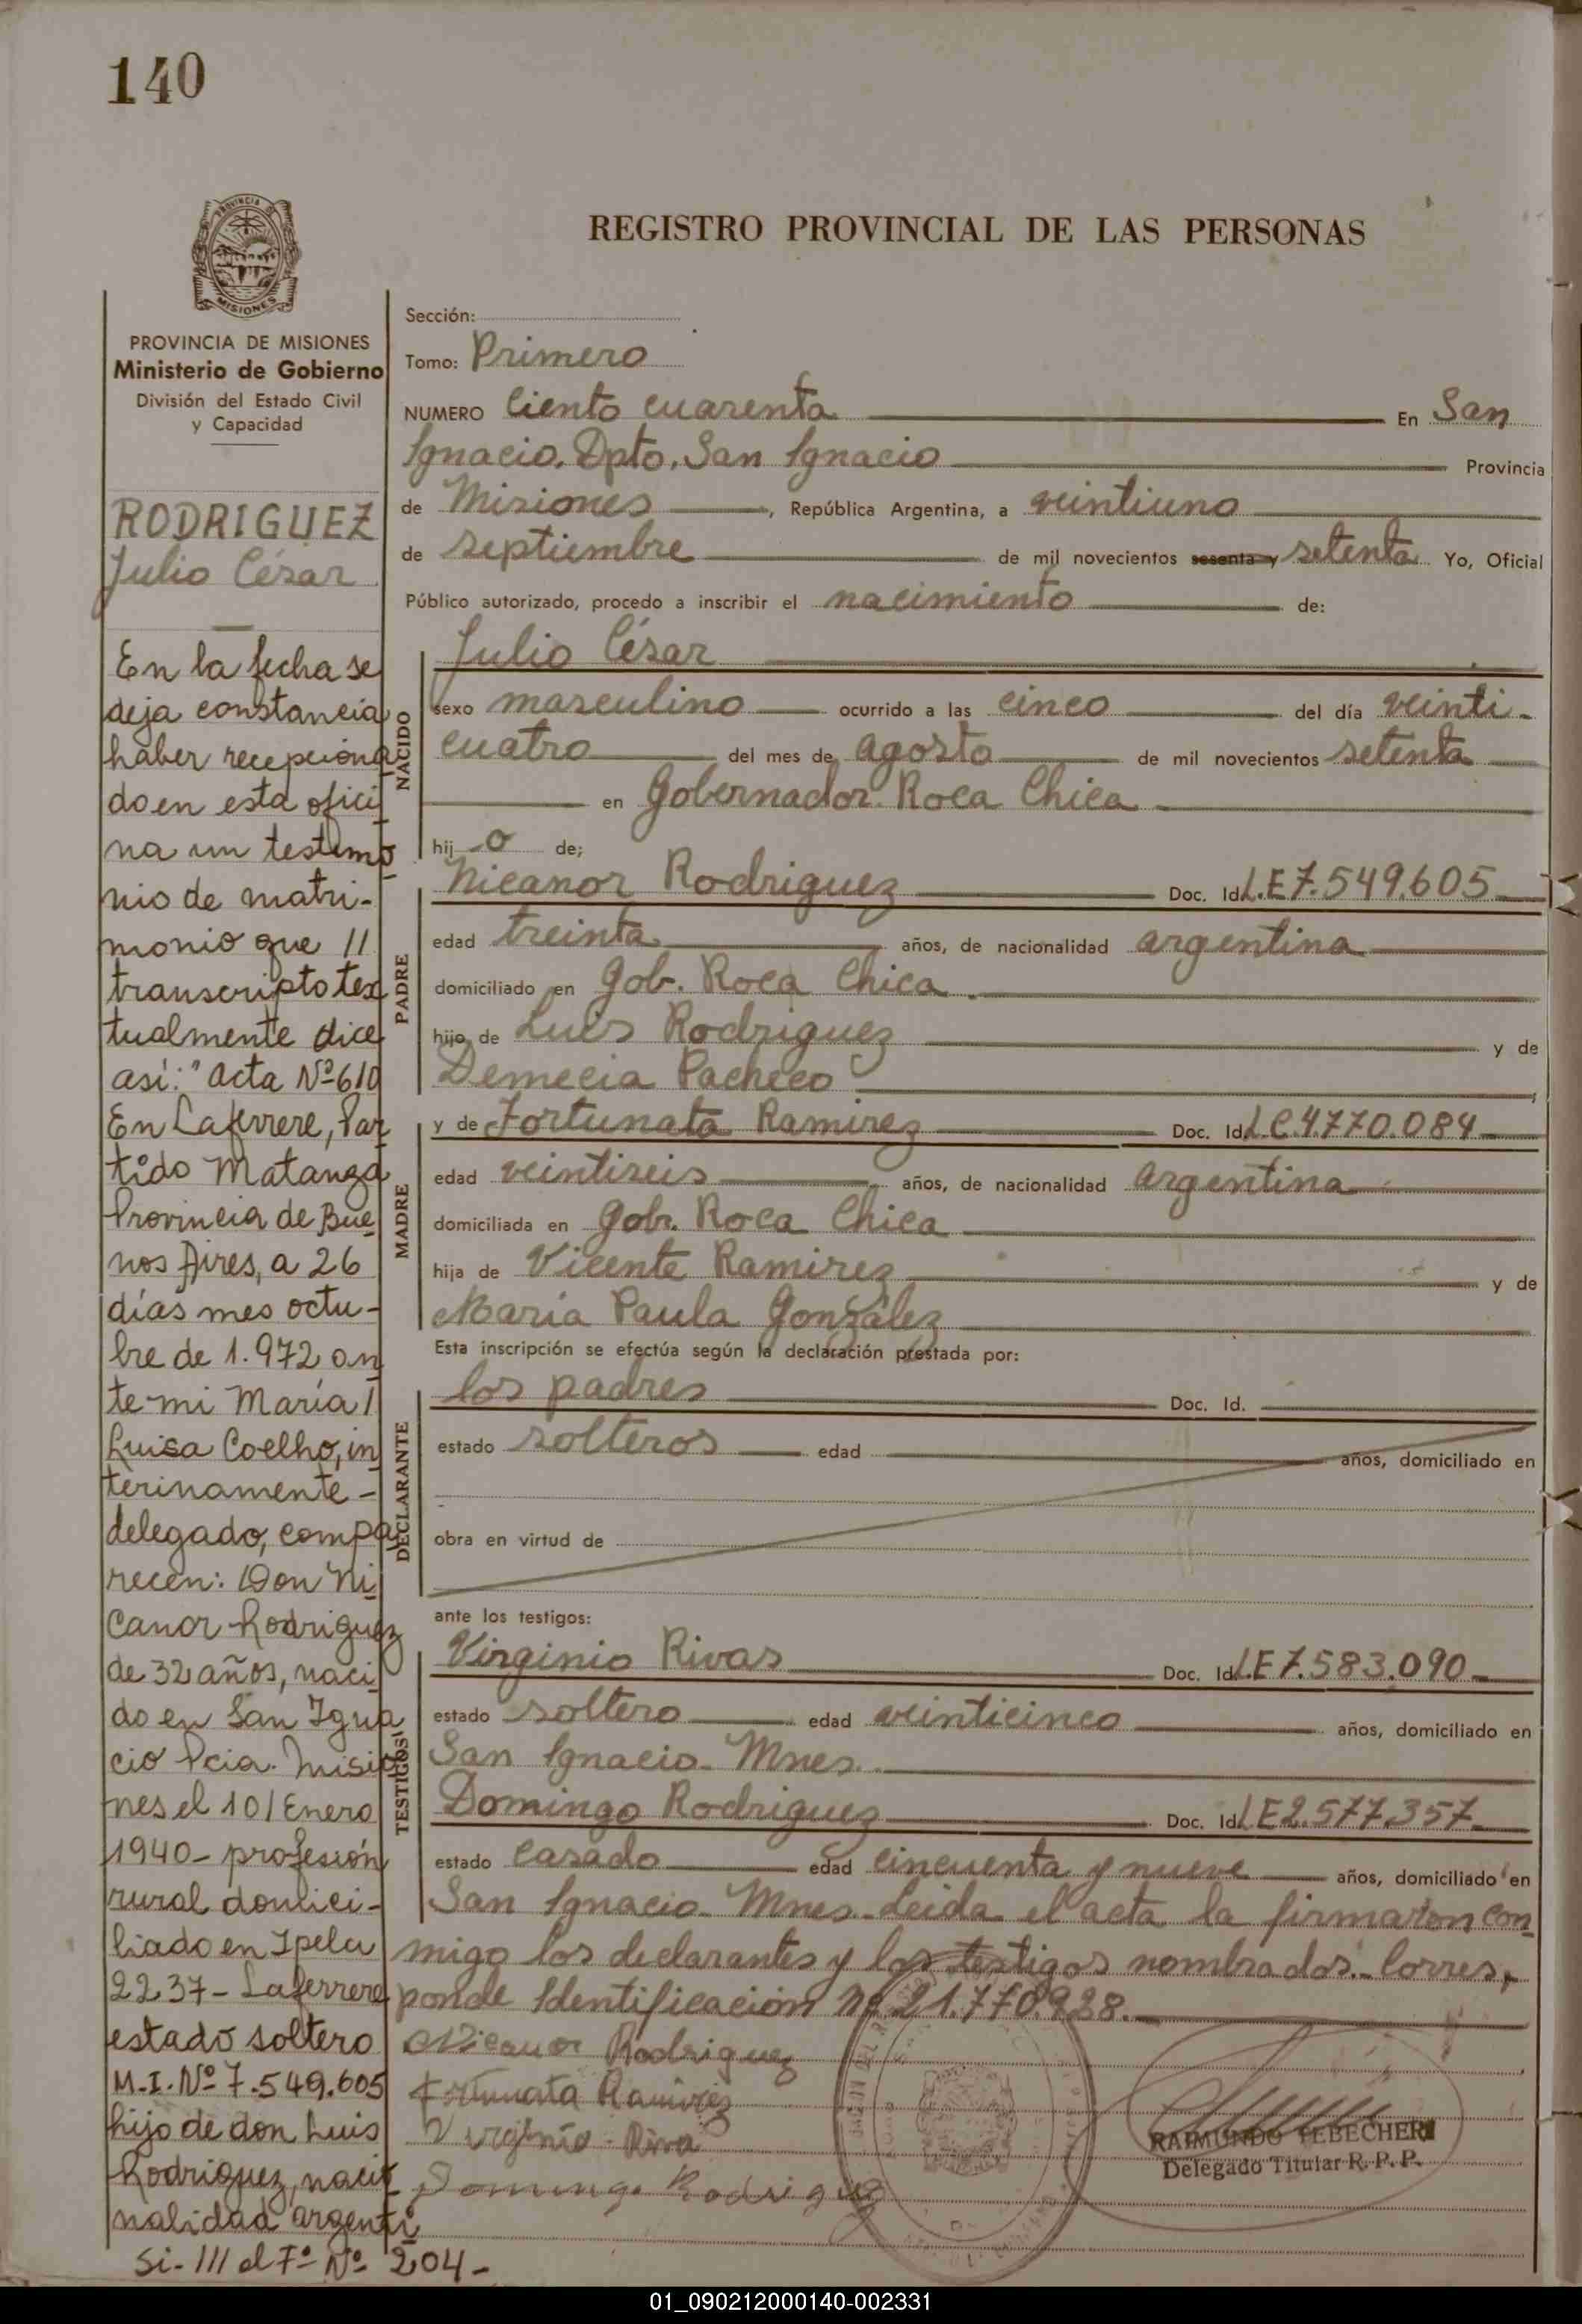 140
REGISTRO PROVINCIAL DE LAS PERSONAS
PROVINCIA DE MISIONES
PROVINCIA DE MISIONES
Ministerio de Gobierno
División del Estado Civil
y Capacidad
RODRIGUEZ
Julio César
En la fecha se
deja constancia
haber recepciona
do en esta ofici
na un testimo
nio de matri-
monio que //
transcripto tex
tualmente dice
así: "Acta Nº 610
En Laferrere, Par
tido Matanza
Provincia de Bue
nos Aires, a 26
días mes octu-
bre de 1.972 an
te mi María /
Luisa Coelho, in
terinamente -
delegado, compa
recen: Don Ni
canor Rodriguez
de 32 años, naci
do en San Igna
cio Pcia. Misio
nes el 10/Enero
1940 - profesión
rural domici-
liado en Ipela
2237 - Laferrere
estado soltero
M.I. Nº 7.549.605
hijo de don Luis
Rodriguez, nacio
nalidad argenti
Si - /// al Fº Nº 204 -
Sección:
Tomo: Primero
NUMERO Ciento cuarenta En San
Ignacio. Dpto. San Ignacio Provincia
de Misiones, República Argentina, a veintiuno
de septiembre de mil novecientos sesenta y setenta Yo, Oficial
Público autorizado, procedo a inscribir el nacimiento de:
NACIDO
Julio César
sexo masculino ocurrido a las cinco del día veinti-
cuatro del mes de agosto de mil novecientos setenta
en Gobernador Roca Chica
hij o de;
PADRE
Nicanor Rodriguez Doc. Id. L.E 7.549.605
edad treinta años, de nacionalidad argentina
domiciliado en Gob. Roca Chica
hijo de Luis Rodriguez y de
Demecia Pacheco
MADRE
y de Fortunata Ramirez Doc. Id. L.C. 4.770.084
edad veintiseis años, de nacionalidad argentina
domiciliada en Gob. Roca Chica
hija de Vicente Ramirez y de
Maria Paula González
Esta inscripción se efectúa según la declaración prestada por:
DECLARANTE
los padres Doc. Id.
estado solteros edad años, domiciliado en
obra en virtud de
ante los testigos:
TESTIGOS
Virginio Rivas Doc. Id. L.E 7.583.090
estado soltero edad veinticinco años, domiciliado en
San Ignacio - Mnes.
Domingo Rodriguez Doc. Id. L E 2.577.357
estado casado edad cincuenta y nueve años, domiciliado en
San Ignacio - Mnes - Leida el acta la firmaron con
migo los declarantes y los testigos nombrados. - Corres,
ponde Identificación Nº 21.770.928.
Nicanor Rodriguez
Fortunata Ramirez
Virginio - Riva
Domingo Rodriguez
RAIMUNDO TEBECHERI
Delegado Titular R. P. P.
01_090212000140-002331